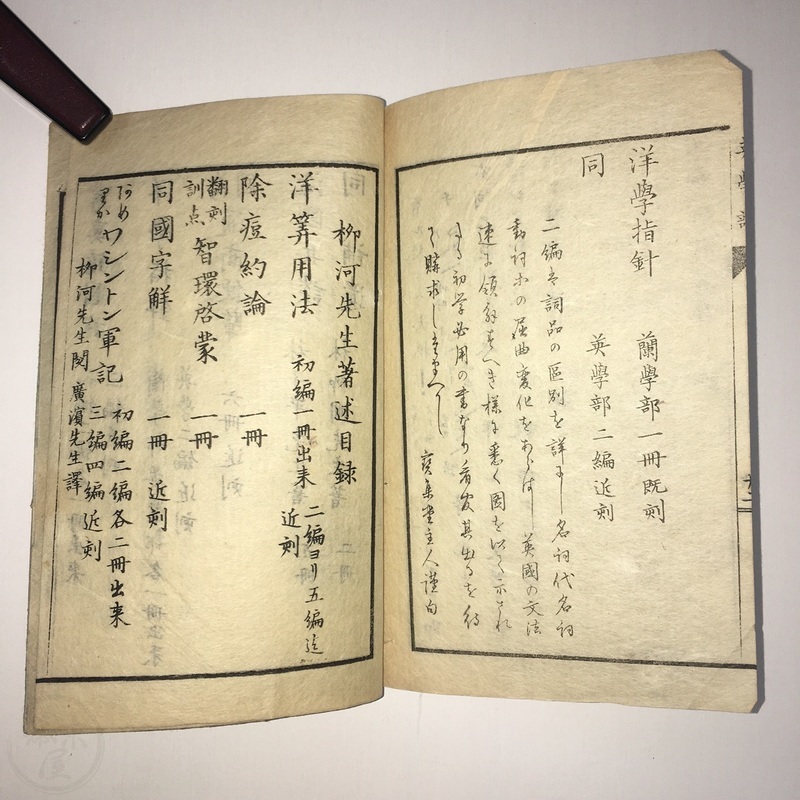 洋學指針　蘭學部一冊既刻
同　英學部二編近刻
二編は詞品の區別を詳にし名詞代名詞
動詞ホの屈曲変化をあらはし英國の文法
速に領解すへき様に悉く圖を以て示され
たる初学必用の書なり看官其出るを待
て購求し玉ふへし　寳集堂主人謹白
柳河先生著述目録
洋筭用法　初編一冊出来　二編ヨリ五編迄近刻
除痘約論　一冊
翻刻訓点　智環啓蒙　一冊
同國字解　一冊　近刻
あめりか　ワシントン軍記　初編二編各二冊出来
三編四編近刻
柳河先生閲　廣濱先生譯